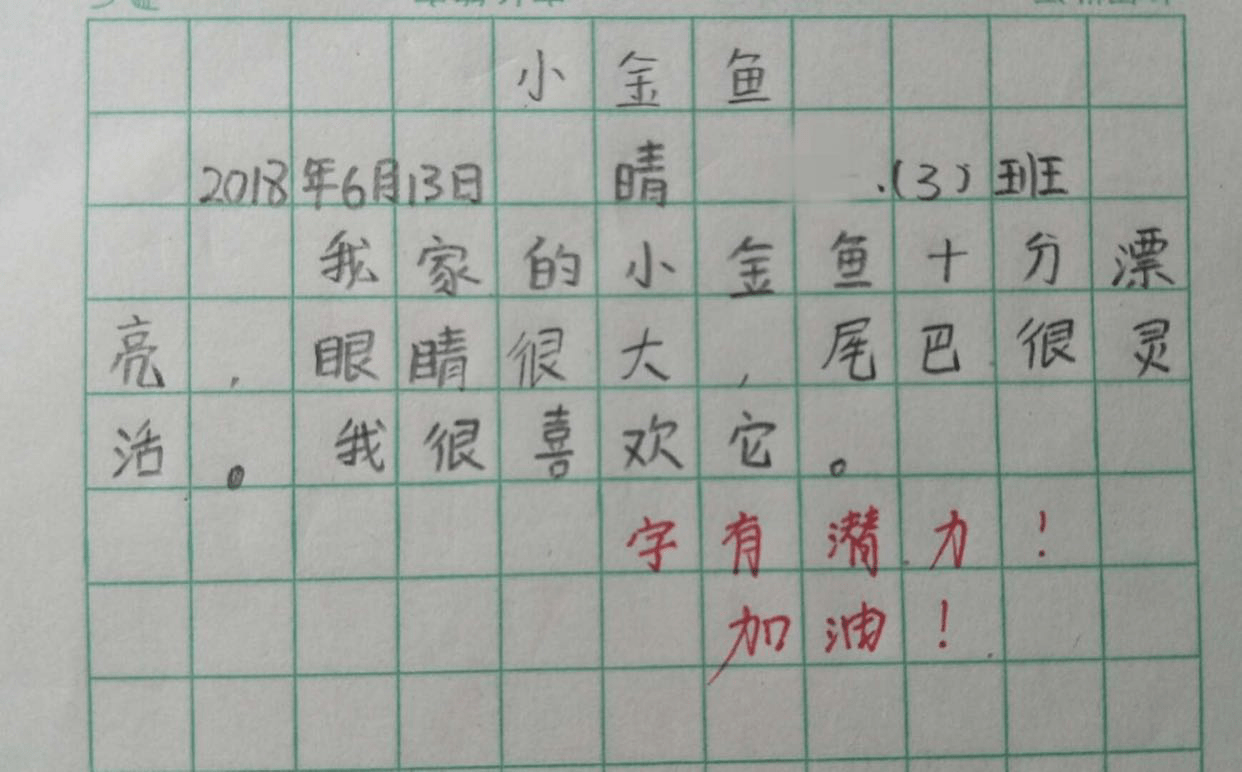 小金鱼
2018年6月13日 晴 .(3)班
我家的小金鱼十分漂
亮,眼睛很大,尾巴很灵
活。我很喜欢它。
字有潜力!
加油!